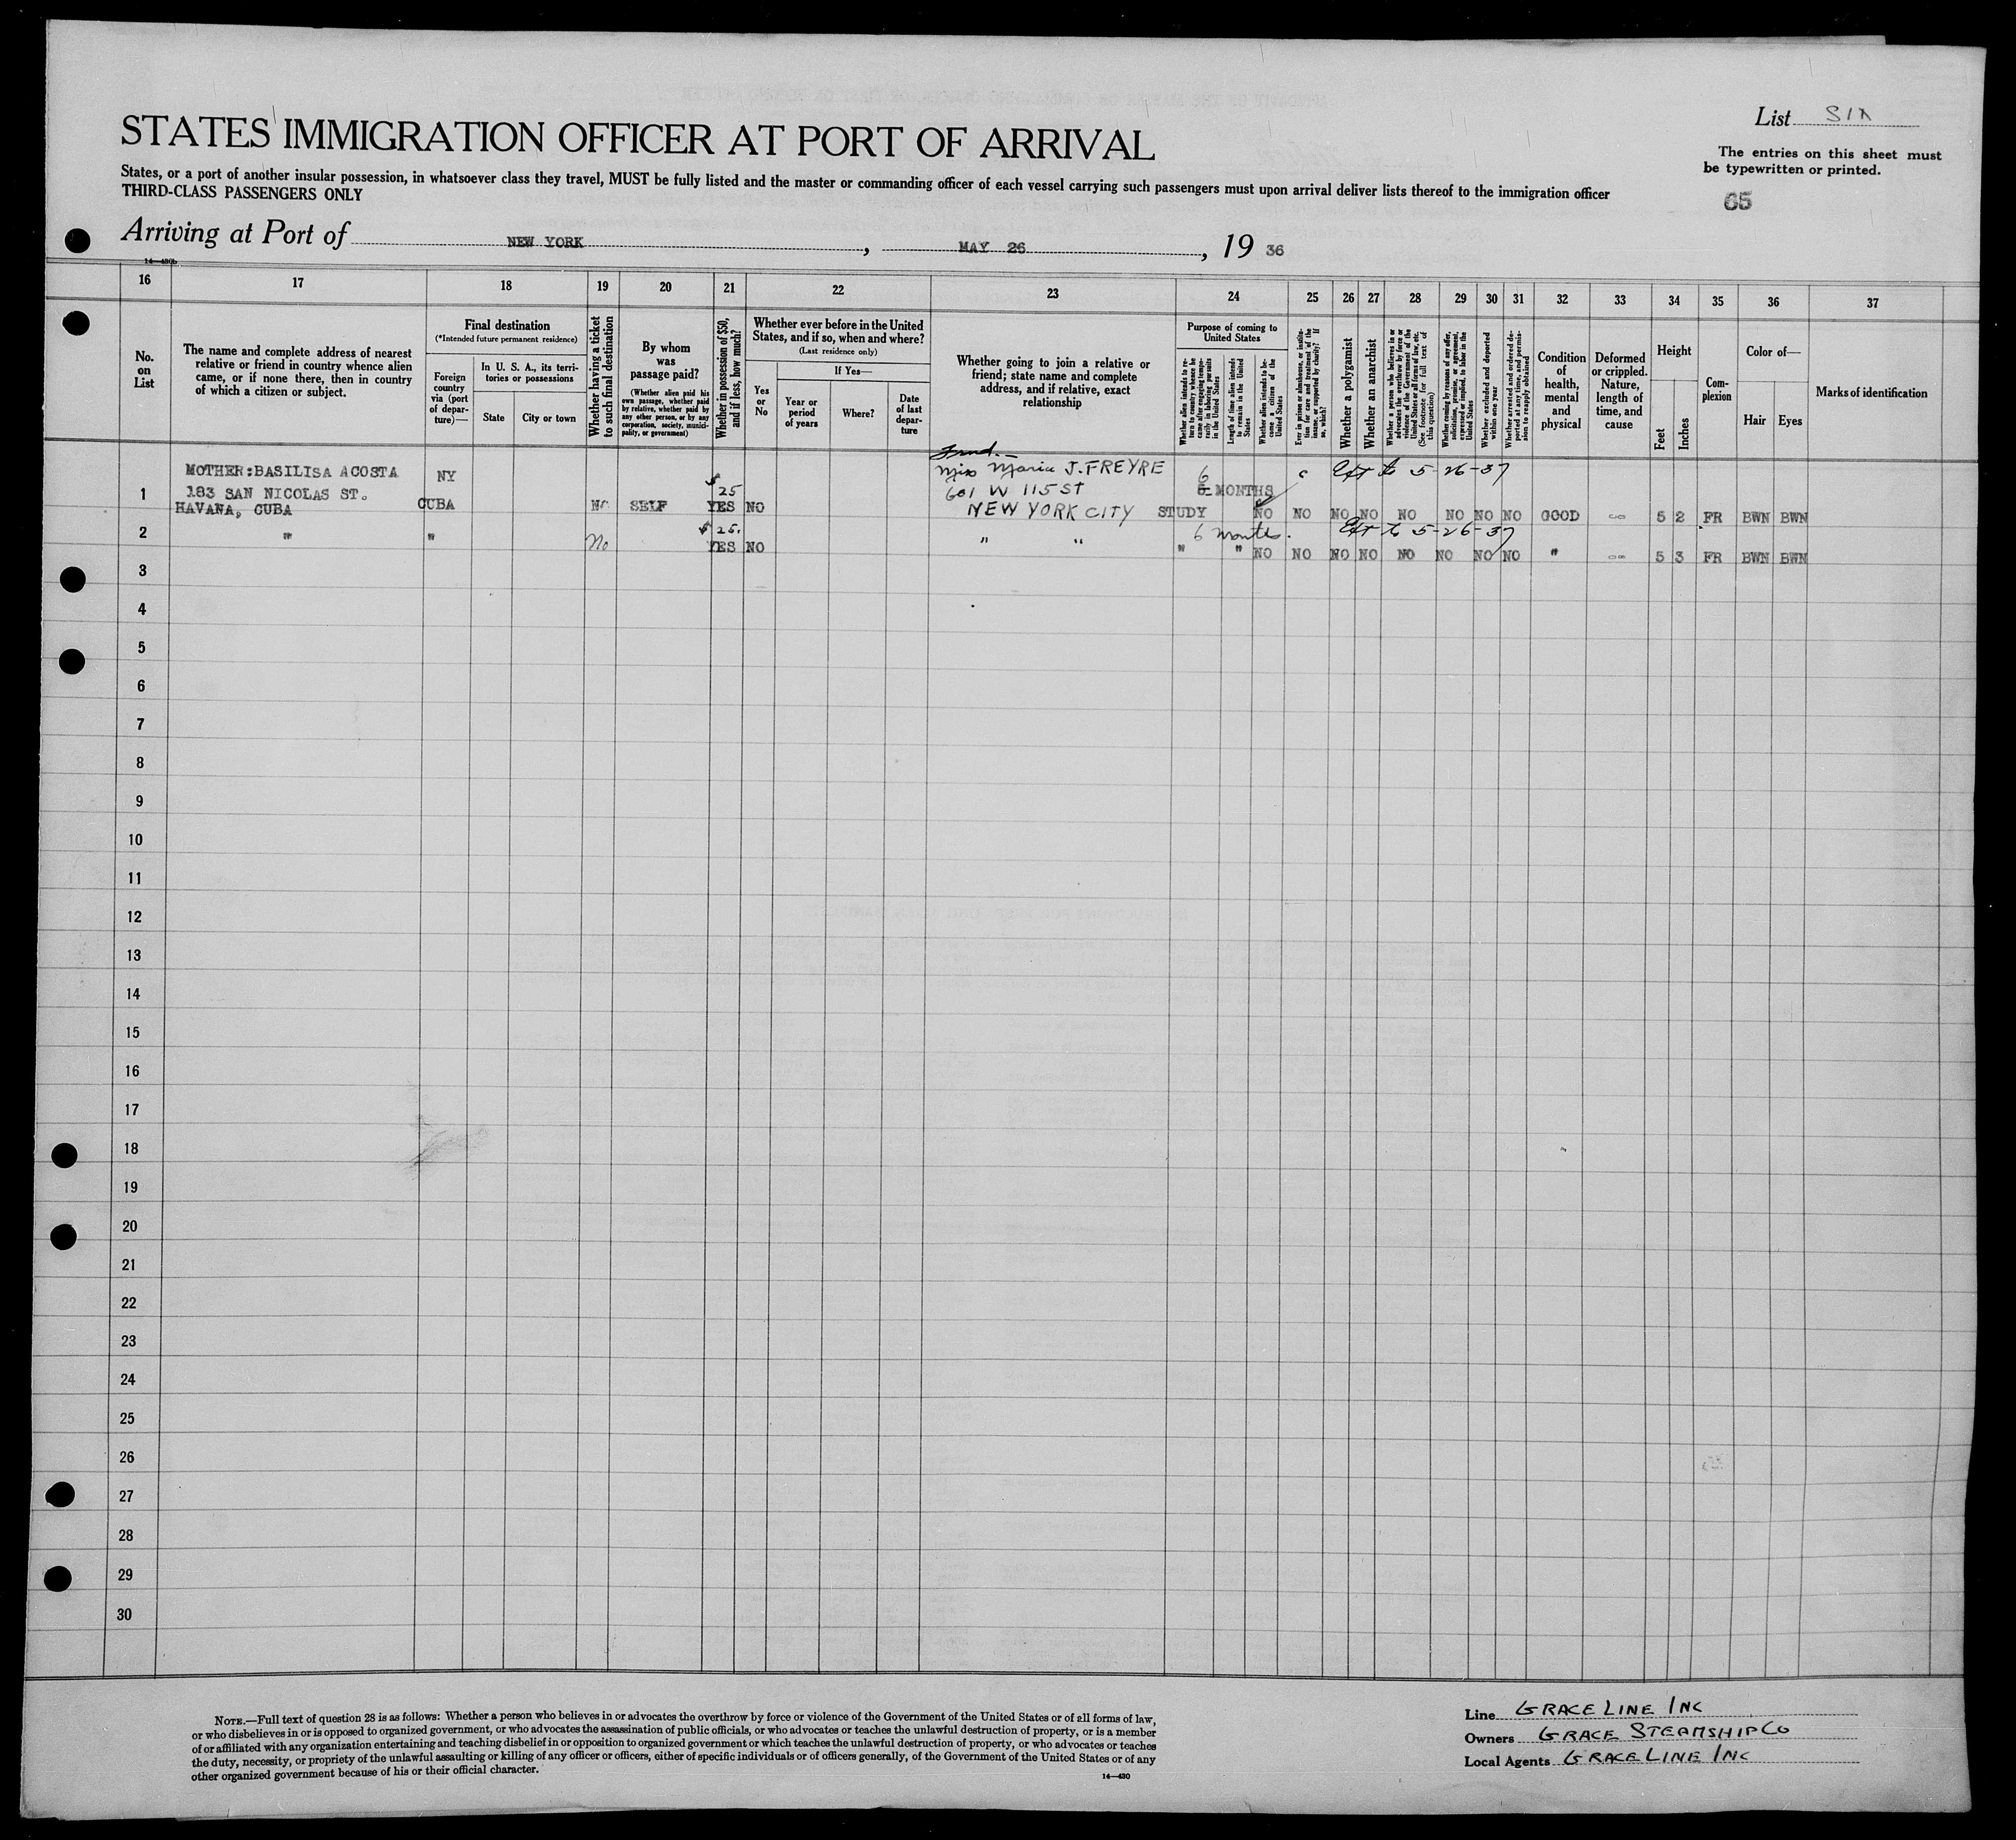 List SIX
STATES IMMIGRATION OFFICER AT PORT OF ARRIVAL
The entries on this sheet must
be typewritten or printed.
States, or a port of another insular possession, in whatsoever class they travel, MUST be fully listed and the master or commanding officer of each vessel carrying such passengers must upon arrival deliver lists thereof to the immigration officer
THIRD-CLASS PASSENGERS ONLY
65
Arriving at Port of NEW YORK, MAY 26, 19 36
14—430b
16 17 18 19 20 21 22 23 24 25 26 27 28 29 30 31 32 33 34 35 36 37
No.
on
List
The name and complete address of nearest
relative or friend in country whence alien
came, or if none there, then in country
of which a citizen or subject.
Final destination
(*Intended future permanent residence)
Foreign
country
via (port
of depar-
ture)—
In U. S. A., its terri-
tories or possessions
State
City or town
Whether having a ticket
to such final destination
By whom
was
passage paid?
(Whether alien paid his
own passage, whether paid
by relative, whether paid by
any other person, or by any
corporation, society, munici-
pality, or government)
Whether in possession of $50,
and if less, how much?
Whether ever before in the United
States, and if so, when and where?
(Last residence only)
Yes
or
No
If Yes—
Year or
period
of years
Where?
Date
of last
depar-
ture
Whether going to join a relative or
friend; state name and complete
address, and if relative, exact
relationship
Purpose of coming to
United States
Whether alien intends to re-
turn to country whence he
came after engaging tempo-
rarily in laboring pursuits
in the United States
Length of time alien intends
to remain in the United
States
Whether alien intends to be-
come a citizen of the
United States
Ever in prison or almshouse, or institu-
tion for care and treatment of the
insane, or supported by charity? If
so, which?
Whether a polygamist
Whether an anarchist
Whether a person who believes in or
advocates the overthrow by force or
violence of the Government of the
United States or all forms of law, etc.
(See footnote for full text of
this question)
Whether coming by reasons of any offer,
solicitation, promise, or agreement,
expressed or implied, to labor in the
United States
Whether excluded and deported
within one year
Whether arrested and ordered de-
ported at any time, and permis-
sion to reapply obtained
Condition
of
health,
mental
and
physical
Deformed
or crippled.
Nature,
length of
time, and
cause
Height
Feet
Inches
Com-
plexion
Color of—
Hair
Eyes
Marks of identification
MOTHER:BASILISA ACOSTA NY Frnd.— Miss Maria J. FREYRE 6 Ext to 5-26-37
1 183 SAN NICOLAS ST. $ 25 601 W 115 ST 6 MONTHS
HAVANA, CUBA CUBA NO SELF YES NO NEW YORK CITY STUDY NO NO NO NO NO NO NO NO GOOD -- 5 2 FR BWN BWN
2 " " No $ 25. " " 6 months. Ext to 5-26-37
YES NO " " NO NO NO NO NO NO NO NO " -- 5 3 FR BWN BWN
3
4
5
6
7
8
9
10
11
12
13
14
15
16
17
18
19
20
21
22
23
24
25
26
27
28
29
30
NOTE.—Full text of question 28 is as follows: Whether a person who believes in or advocates the overthrow by force or violence of the Government of the United States or of all forms of law,
or who disbelieves in or is opposed to organized government, or who advocates the assassination of public officials, or who advocates or teaches the unlawful destruction of property, or is a member
of or affiliated with any organization entertaining and teaching disbelief in or opposition to organized government or which teaches the unlawful destruction of property, or who advocates or teaches
the duty, necessity, or propriety of the unlawful assaulting or killing of any officer or officers, either of specific individuals or of officers generally, of the Government of the United States or of any
other organized government because of his or their official character.
14—430
Line GRACE LINE INC
Owners GRACE STEAMSHIP CO
Local Agents GRACE LINE INC